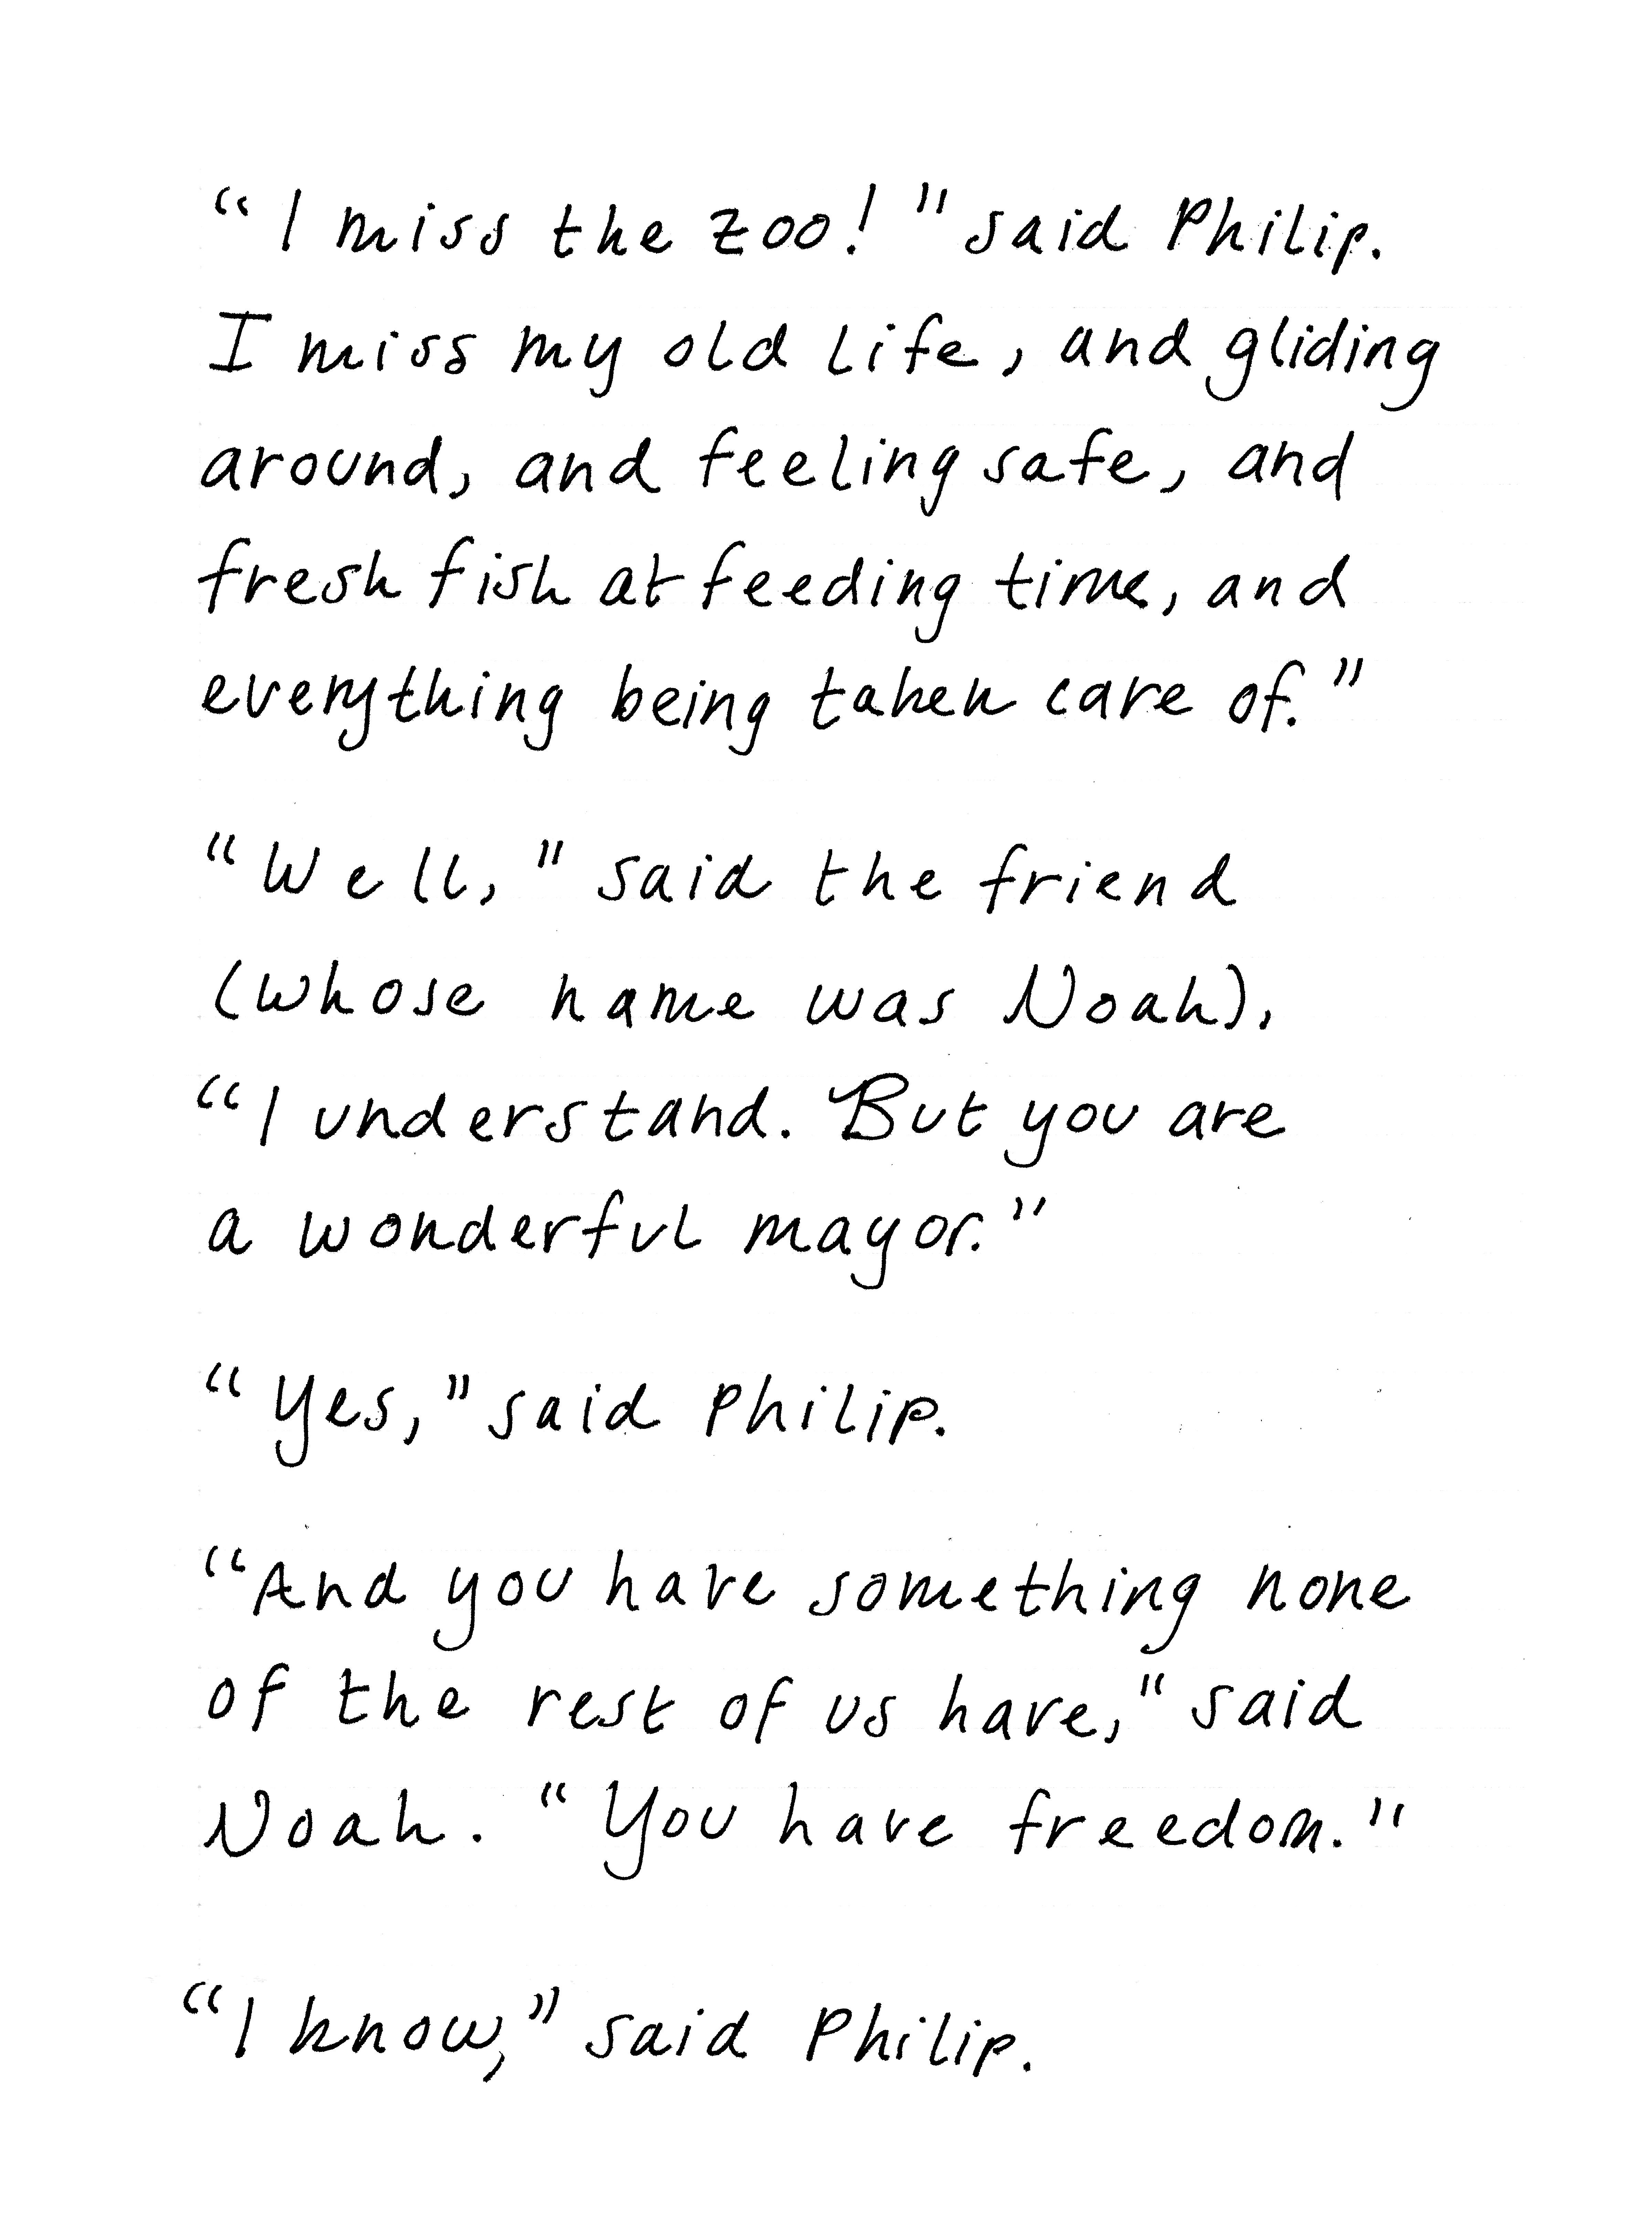 “I miss the zoo!” said Philip.
I miss my old life, and gliding
around, and feeling safe, and
fresh fish at feeding time, and
everything being taken care of.”
“Well,” said the friend
(whose name was Noah),
“I understand. But you are
a wonderful mayor.”
“Yes,” said Philip.
“And you have something none
of the rest of us have,” said
Noah. “You have freedom.”
“I know,” said Philip.